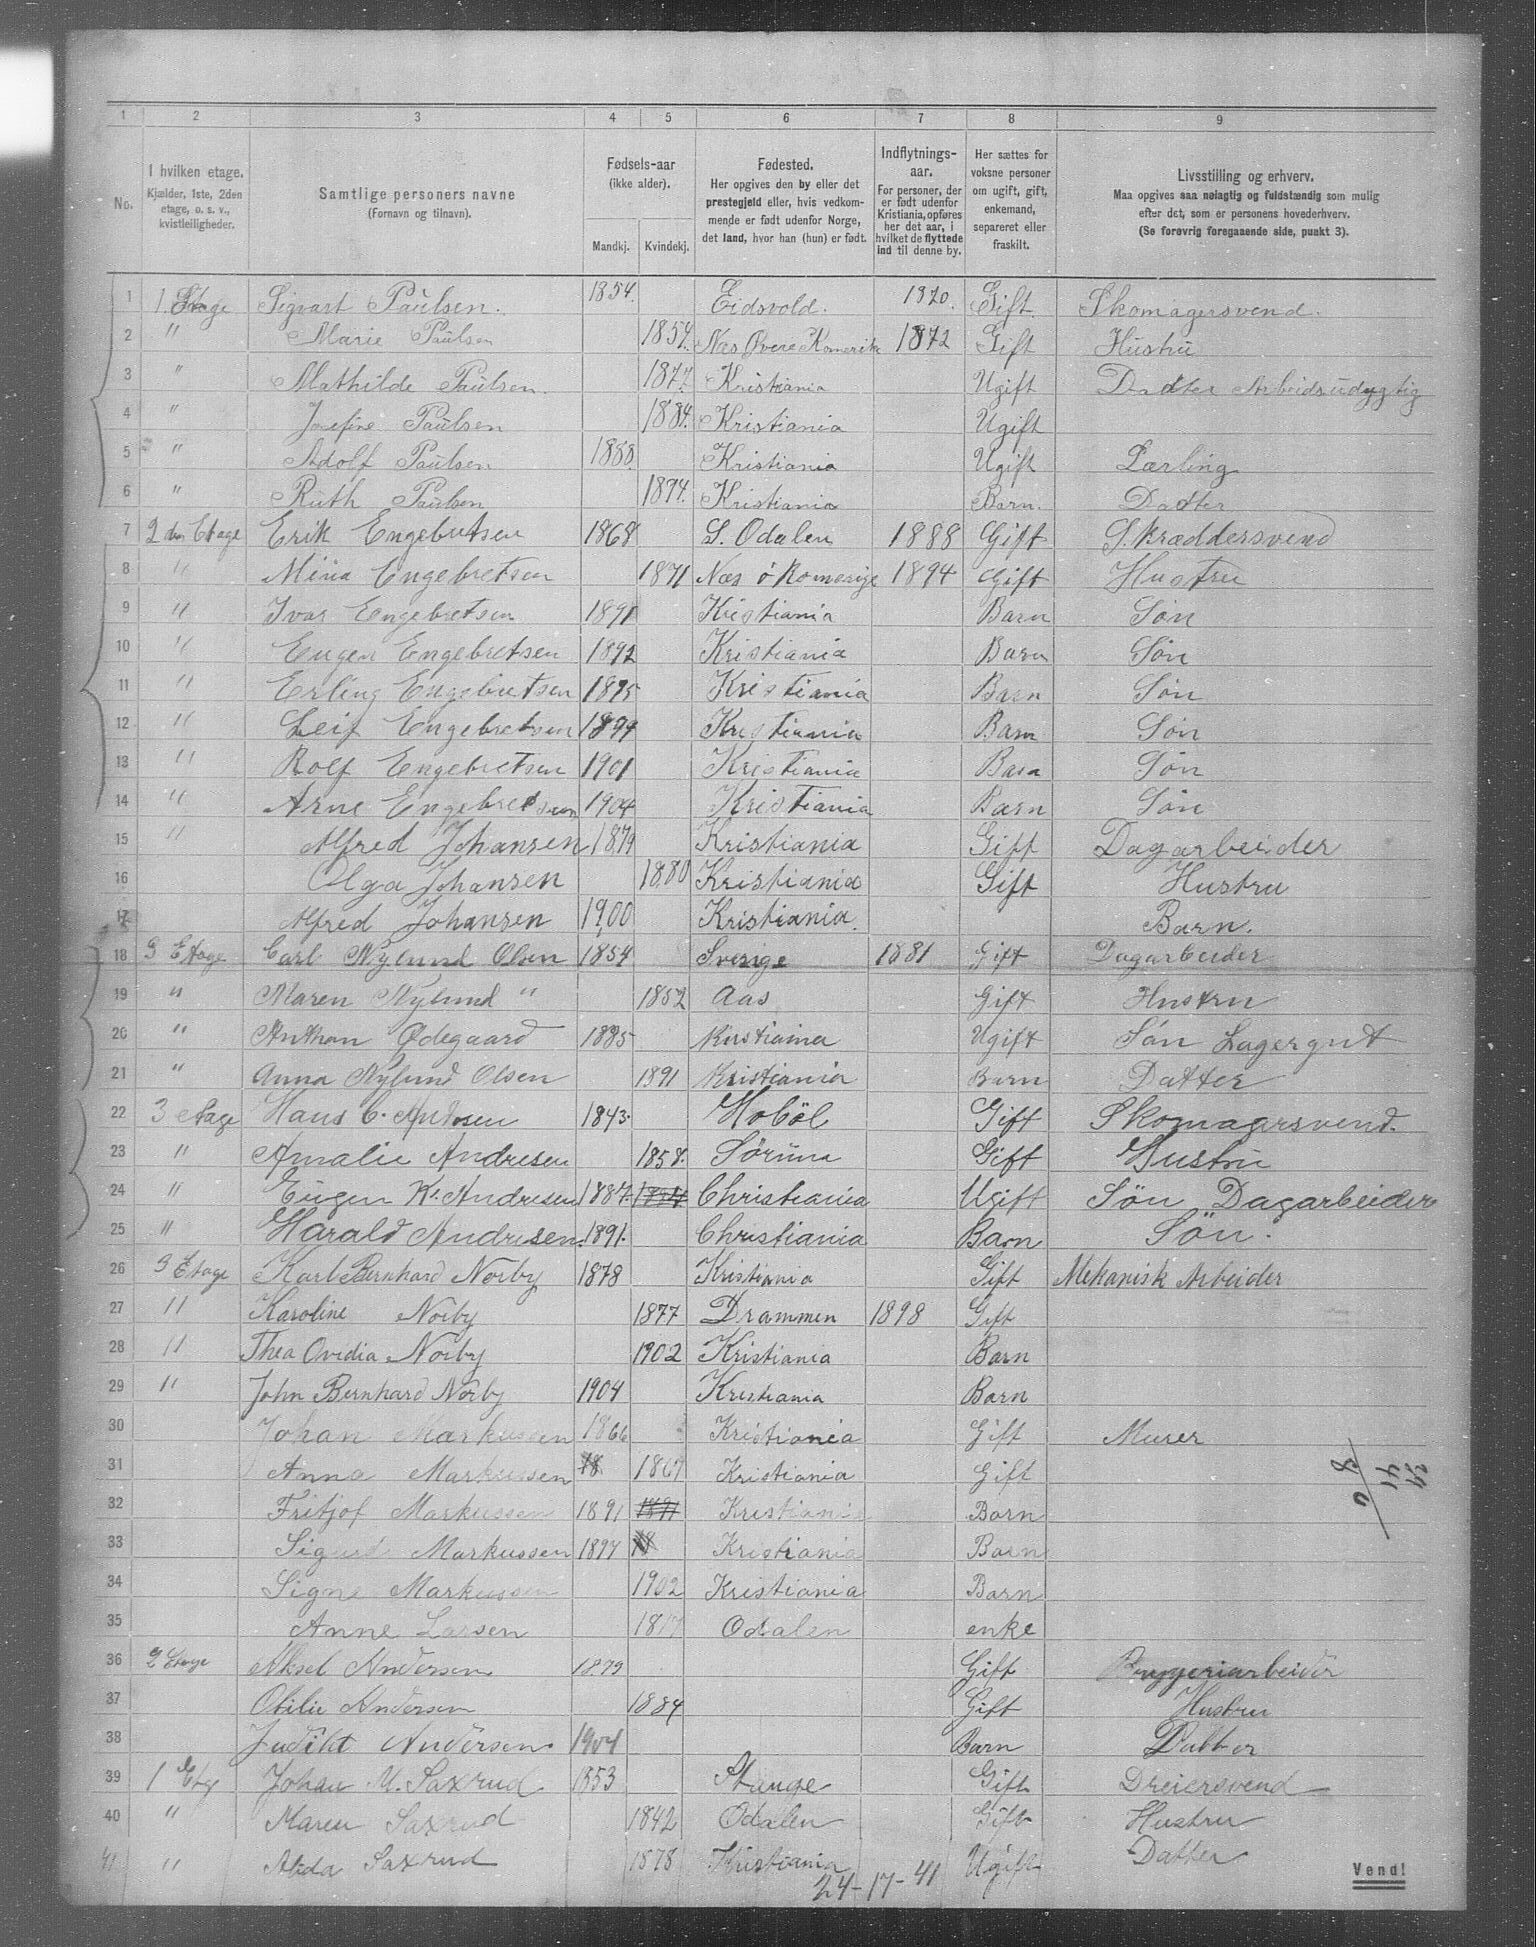 1 2 3 4 5 6 7 8 9
No. I hvilken etage. Kjælder, 1ste, 2den etage, o. s. v., kvistleiligheder. Samtlige personers navne (Fornavn og tilnavn). Fødsels-aar (ikke alder). Mandkj. Kvindekj. Fødested. Her opgives den by eller det prestegjeld eller, hvis vedkommende er født udenfor Norge, det land, hvor han (hun) er født. Indflytnings-aar. For personer, der er født udenfor Kristiania, opføres her det aar, i hvilket de flyttede ind til denne by. Her sættes for voksne personer om ugift, gift, enkemand, separeret eller fraskilt. Livsstilling og erhverv. Maa opgives saa nøiagtig og fuldstændig som mulig efter det, som er personens hovederhverv. (Se forøvrig foregaaende side, punkt 3).
1 1. Etage Sigvart Paulsen. 1854. Eidsvold. 1870. Gift. Skomagersvend.
2 " Marie Paulsen 1854. Næs Øvere Romerike 1872 Gift Hustru
3 " Mathilde Paulsen. 1877. Kristiania Ugift Datter Arbeidsudygtig
4 " Josefine Paulsen 1884. Kristiania Ugift
5 " Adolf Paulsen 1888. Kristiania Ugift Lærling
6 " Ruth Paulsen 1894. Kristiania Barn. Datter
7 2 den Etage Erik Engebretsen 1868 S. Odalen 1888 Gift Skræddersvend
8 " Mina Engebretsen 1871 Næs ö Romerige 1894 Gift Hustru
9 " Ivar Engebretsen 1891 Kristiania Barn Søn
10 " Eugen Engebretsen 1892 Kristiania Barn Søn
11 " Erling Engebretsen 1895 Kristiania Barn Søn
12 " Leif Engebretsen 1899 Kristiania Barn Søn
13 " Rolf Engebretsen 1901 Kristiania Barn Søn
14 " Arne Engebretsen 1904 Kristiania Barn Søn
15 " Alfred Johansen 1879 Kristiania Gift Dagarbeider
16 Olga Johansen 1880 Kristiania Gift Hustru
17 Alfred Johansen 1900 Kristiania. Barn.
18 3 Etage Carl Nylund Olsen 1854 Sverige 1881 Gift Dagarbeider
19 " Maren Nylund " 1852 Aas Gift Hustru
20 " Anthon Ødegaard 1885 Kristiania Ugift Søn Lagergut
21 " Anna Nylund Olsen 1891 Kristiania Barn Datter
22 3 etage Hans C. Andresen 1843. Hobøl Gift Skomagersvend.
23 " Amalie Andresen 1858. Sørum Gift Hustru
24 " Eugen K. Andresen 1887. Christiania Ugift Søn Dagarbeider
25 " Harald Andresen. 1891. Christiania Barn Søn.
26 3 Etage Karl Bernhard Norby 1878 Kristiania Gift Mekanisk Arbeider
27 " Karoline Norby 1877 Drammen 1898 Gift
28 " Thea Ovidia Norby 1902 Kristiania Barn
29 " John Bernhard Norby 1904 Kristiania Barn
30 Johan Markussen 1866 Kristiania Gift Murer
31 Anna Markussen 18 1867 Kristiania Gift
32 Fritjof Markussen 1891 1891 Kristiania Barn
33 Sigurd Markussen 1897 Kristiania Barn
34 Signe Markussen 1902 Kristiania Barn
35 Anne Larsen Odalen enke
36 2 Etage Aksel Andersen 1879 Gift Bryggeriarbeider
37 Otilie Andersen 1884 Gift Hustru
38 Judikt Andersen 1904 Barn Datter
39 1 Etg Johan M. Saxrud 1853 Stange Gift Dreiersvend
40 " Maren Saxrud 1842 Odalen Gift Hustru
41 " Alida Saxrud 1878 Kristiania Ugift Datter
24-17-41
Vend!